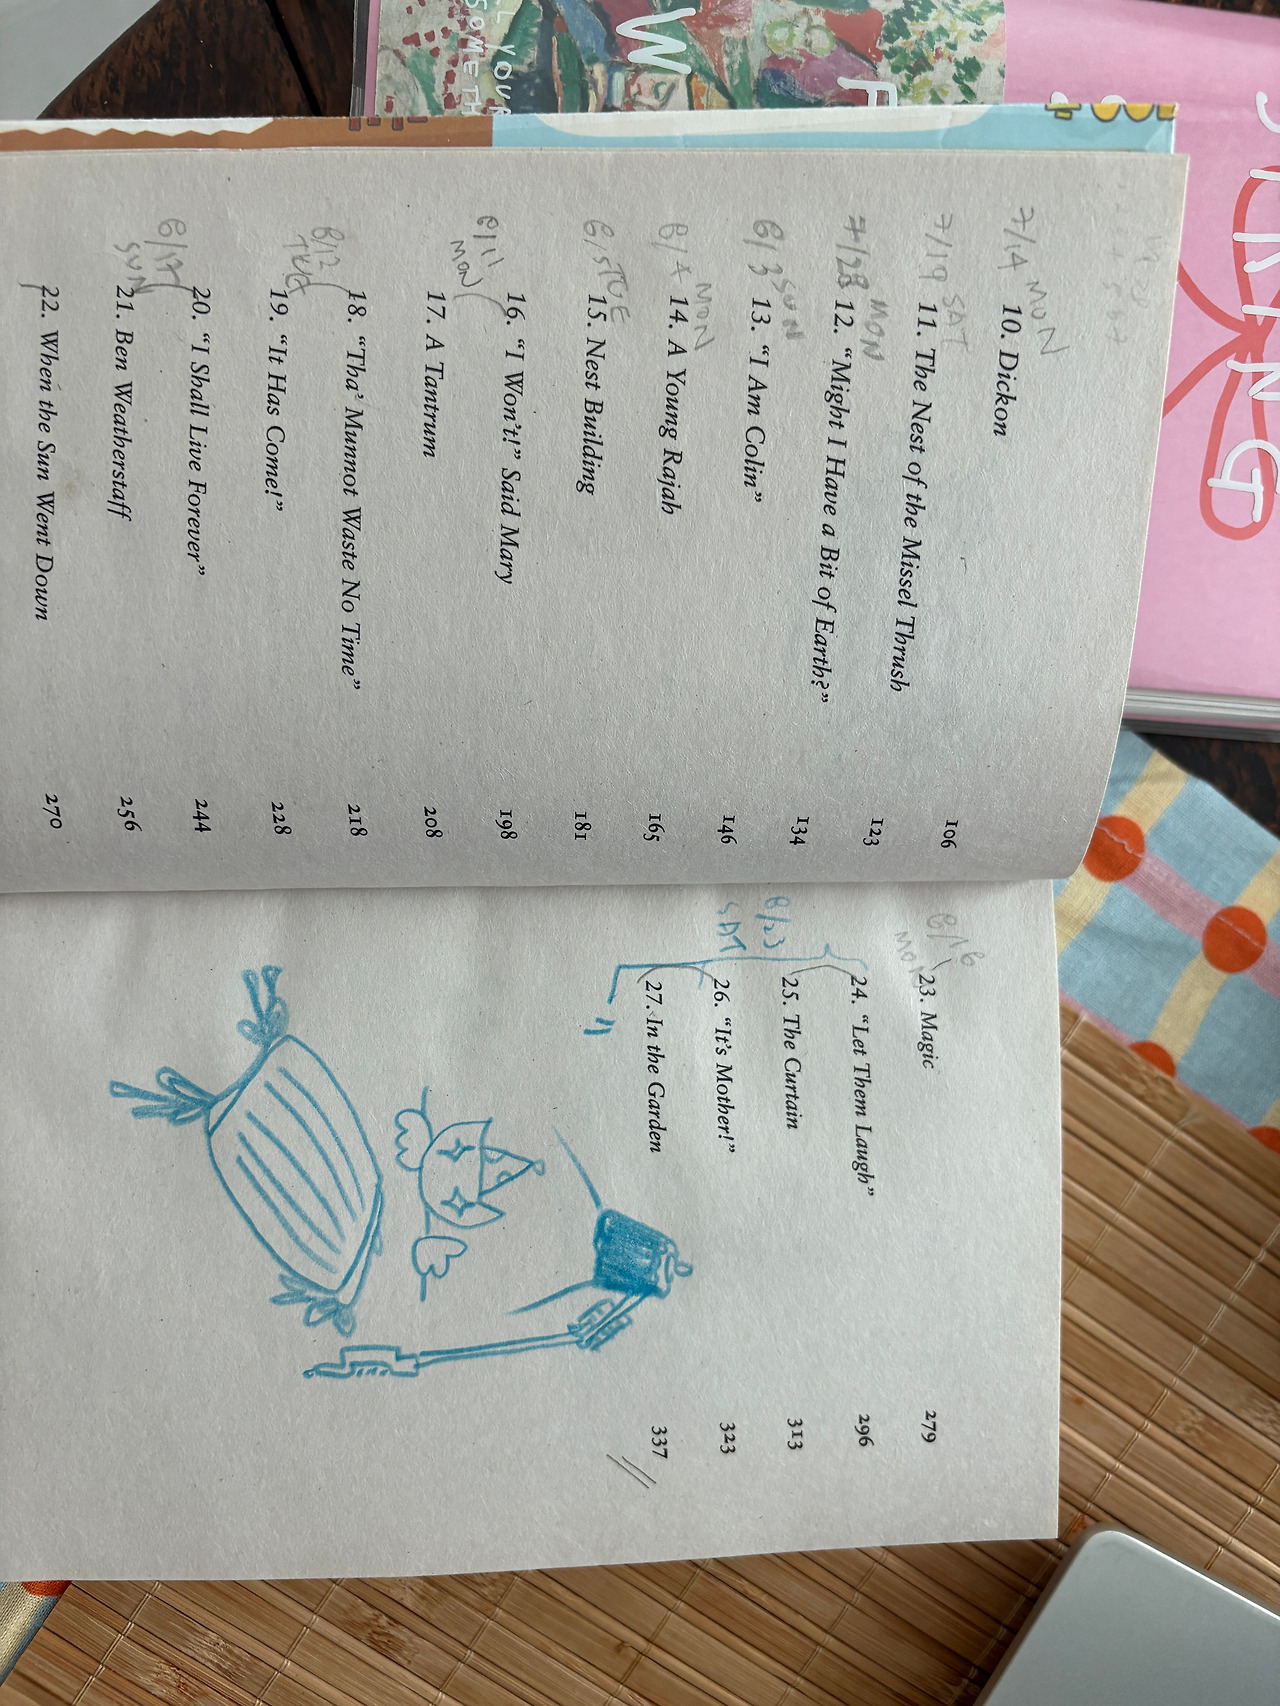 7/14 MON 10. Dickon 106
7/19 SAT 11. The Nest of the Missel Thrush 123
7/28 MON 12. “Might I Have a Bit of Earth?” 134
8/3 SUN 13. “I Am Colin” 146
8/4 MON 14. A Young Rajah 165
8/5 TUE 15. Nest Building 181
8/11 MON 16. “I Won’t!” Said Mary 198
17. A Tantrum 208
8/12 TUE 18. “Tha’ Munnot Waste No Time” 218
19. “It Has Come!” 228
8/17 SUN 20. “I Shall Live Forever” 244
21. Ben Weatherstaff 256
22. When the Sun Went Down 270
8/18 MON 23. Magic 279
24. “Let Them Laugh” 296
8/23 SAT 25. The Curtain 313
26. “It’s Mother!” 323
27. In the Garden 337